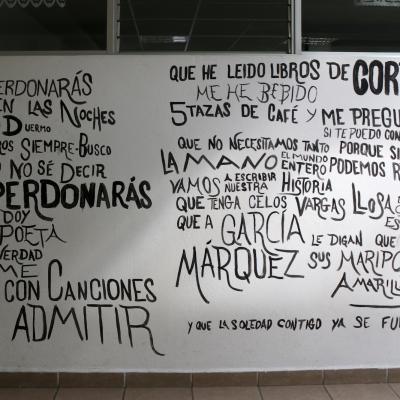 PERDONARÁS
EN LAS NOCHES
DUERMO
SIEMPRE-BUSCO
NO SÉ DECIR
PERDONARÁS
DOY
POETA
VERDAD
ME
CON CANCIONES
ADMITIR
QUE HE LEIDO LIBROS DE
ME HE BEBIDO
5 TAZAS DE CAFÉ Y ME
SI TE PUEDO
QUE NO NECESITAMOS TANTO PORQUE
LA MANO EL MUNDO ENTERO PODEMOS
VAMOS A ESCRIBIR NUESTRA HISTORIA
QUE TENGA CELOS VARGAS LLOSA
QUE A GARCÍA LE DIGAN QUE
MÁRQUEZ SUS
Y QUE LA SOLEDAD CONTIGO YA SE